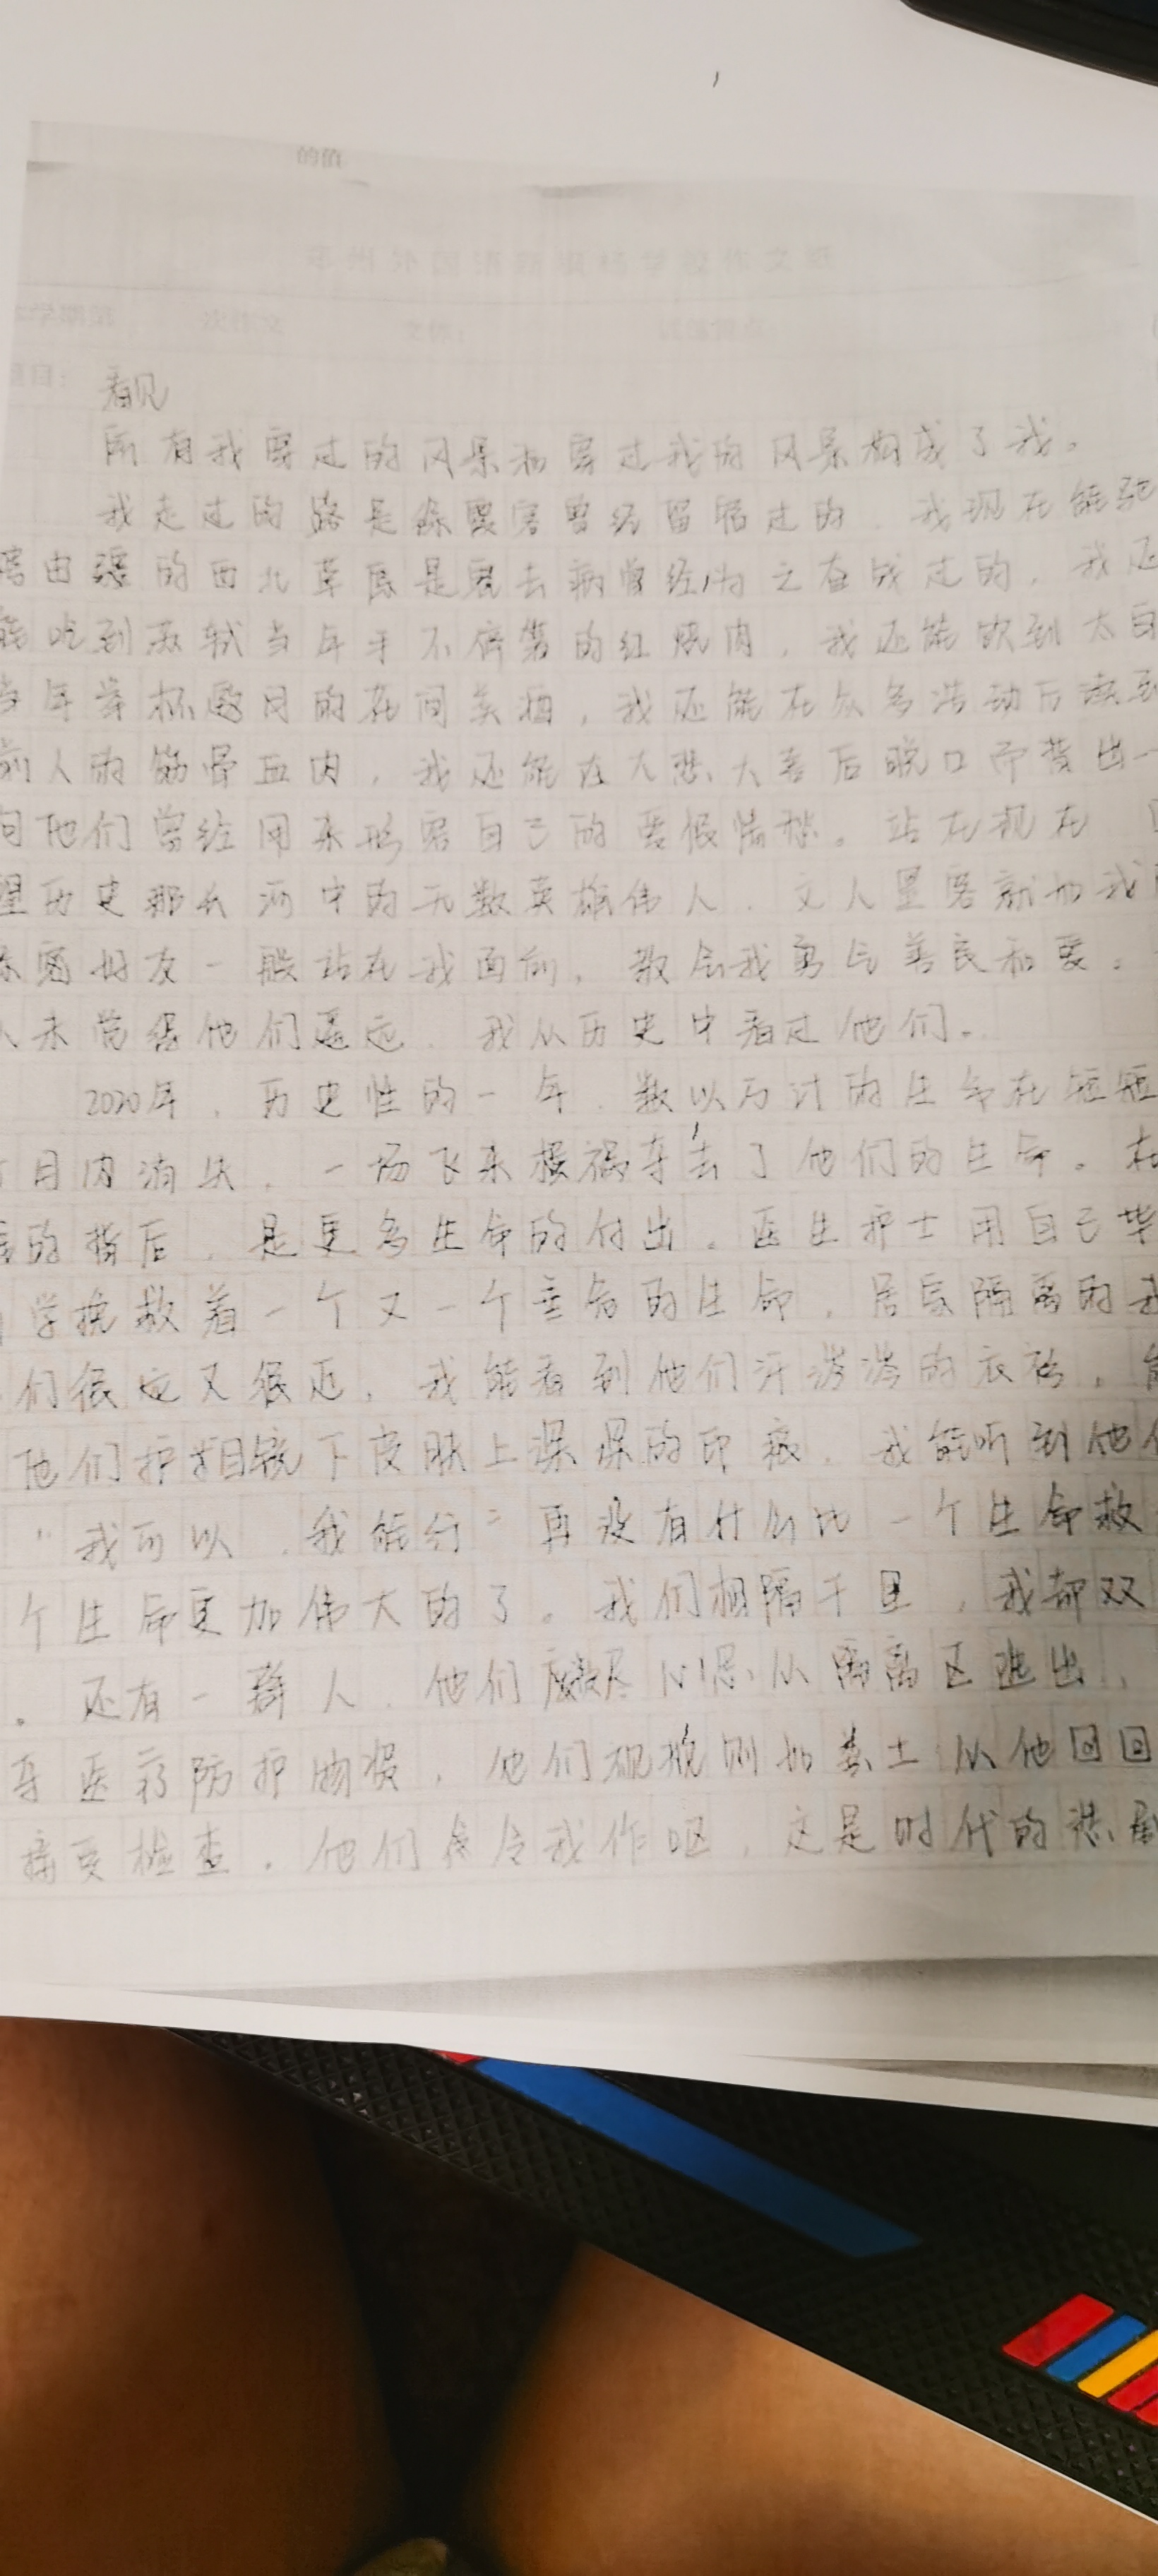 的值
看见
所有我穿过的风景和穿过我的风景构成了我。
我走过的路是徐霞客曾经留宿过的，我现在能驰
由疆的西北草原是霍去病曾经为之奋战过的，我还
能吃到苏轼当年手不停箸的红烧肉，我还能饮到太白
当年举杯邀月的花间美酒，我还能在众多活动后读到
前人的筋骨血肉，我还能在大悲大喜后脱口而背出一
句他们曾经用来形容自己的爱恨情愁。站在现在
望历史那长河中的无数英雄伟人、文人墨客就如我
亲密好友一般站在我面前，教会我勇气善良和爱。
从未觉得他们遥远，我从历史中看过他们。
2020年，历史性的一年，数以万计的生命在短短
月内消失，一场飞来横祸夺去了他们的生命。在
的背后，是更多生命的付出。医生护士用自己毕
学挽救着一个又一个垂危的生命，居家隔离的我
们很远又很近，我能看到他们汗涔涔的衣衫，能
他们护目镜下皮肤上深深的印痕，我能听到他们
“我可以，我能行”再没有什么比一个生命救
个生命更加伟大的了。我们相隔千里，我都双
。还有一群人，他们费尽心思从隔离区逃出，
夺医疗防护物资，他们视规则如粪土从他国回
接受检查。他们令我作呕，这是时代的悲剧